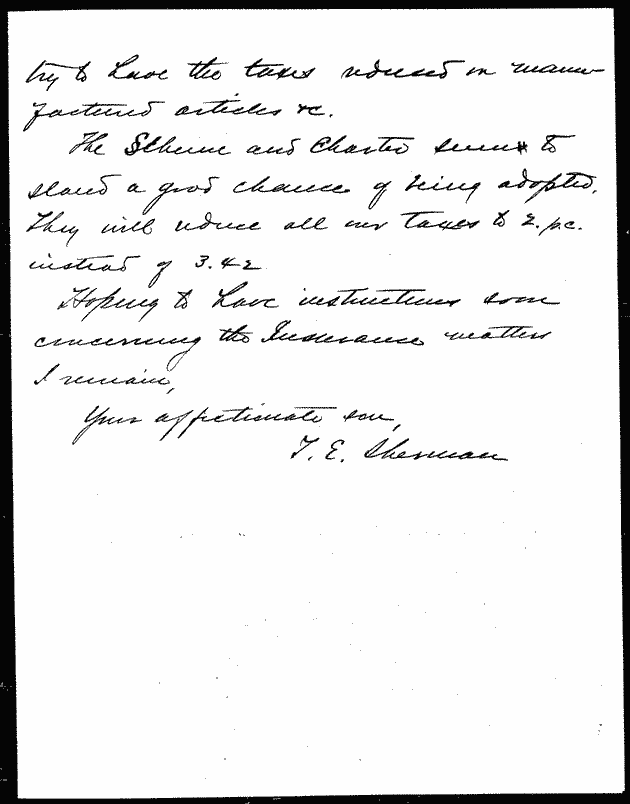 try to have the taxes reduced on manu-
factured articles &c.
The Scheme and Charter seem to
stand a good chance of being adopted.
They will reduce all our taxes to 2. p.c.
instead of 3.42
Hoping to have instructions soon
concerning the Insurance matters
I remain,
Your affectionate son,
T. E. Sherman